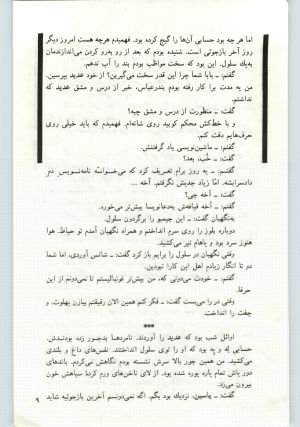 اما هر چه بود حسابی آن‌ها را گیج کرده بود. فهمیدم هرچه هست امروز دیگر
روز آخر بازجوئی است. شنیده بودم که بعد از رو به رو کردن می‌اندازندمان
به یک سلول. این بود که سخت مواظب بودم بند را آب ندهم.
گفتم: ـ بابا شما چرا این قدر سخت می‌گیرین؟ از خود عدید بپرسین.
من یه مدت برا کار رفته بودم بندرعباس، خبر از درس و مشق عدید که
نداشتم.
گفت: ـ منظورت از درس و مشق چیه؟
و با خط‌کش محکم کوبید روی شانه‌ام. فهمیدم که باید خیلی روی
حرف‌هایم دقت کنم.
گفتم: ـ ماشین‌نویسی یاد گرفتنش.
گفت: ـ خُب، بعد؟
گفتم: ـ یه روز برام تعریف کرد که می‌خواسته نامه‌نویس دم
دادسرا بشه. امّا زیاد جدیش نگرفتم. آخه ...
گفت: ـ آخه چی؟
گفتم: ـ آخه قیافه‌ش به دعانویسا بیش‌تر می‌خوره.
به نگهبان گفت: ـ این جیمبو را برگردون سلول.
دوباره بلوز را روی سرم انداختم و همراه نگهبان آمدم تو حیاط. هوا
هنوز سرد بود و پاهام تیر می‌کشید.
وقتی نگهبان در سلول را برایم باز کرد گفت: ـ شانس آوردی، اما شما
دو تا انگار زیادم اهل این کارا نبودین.
گفتم: ـ خودت می‌دونی که، من بیش‌تر فوتبالیستم تا نمی‌دونم از این
حرفا.
وقتی در را می‌بست گفت: ـ فکر کنم همین الان رفیقتم بیارن بهلوت. و
جفت را انداخت.
***
اوائل شب بود که عدید را آوردند. نامردها بدجور زده بودندش.
حسابی له و په بود که او را توی سلول انداختند. نفس‌های داغ و بلندی
می‌کشید. من همین جور بالا سرش نشسته بودم نگاهش می‌کردم. باندهای
دور پاش تمام پاره پوره شده بود. از لای ناخن‌های ورم کردۀ سیاهش خون
بیرون می‌زد.
گفت: ـ یاسین، نزدیک بود بگم. اگه نمی‌دونسم آخرین بازجوئیه شاید
۹